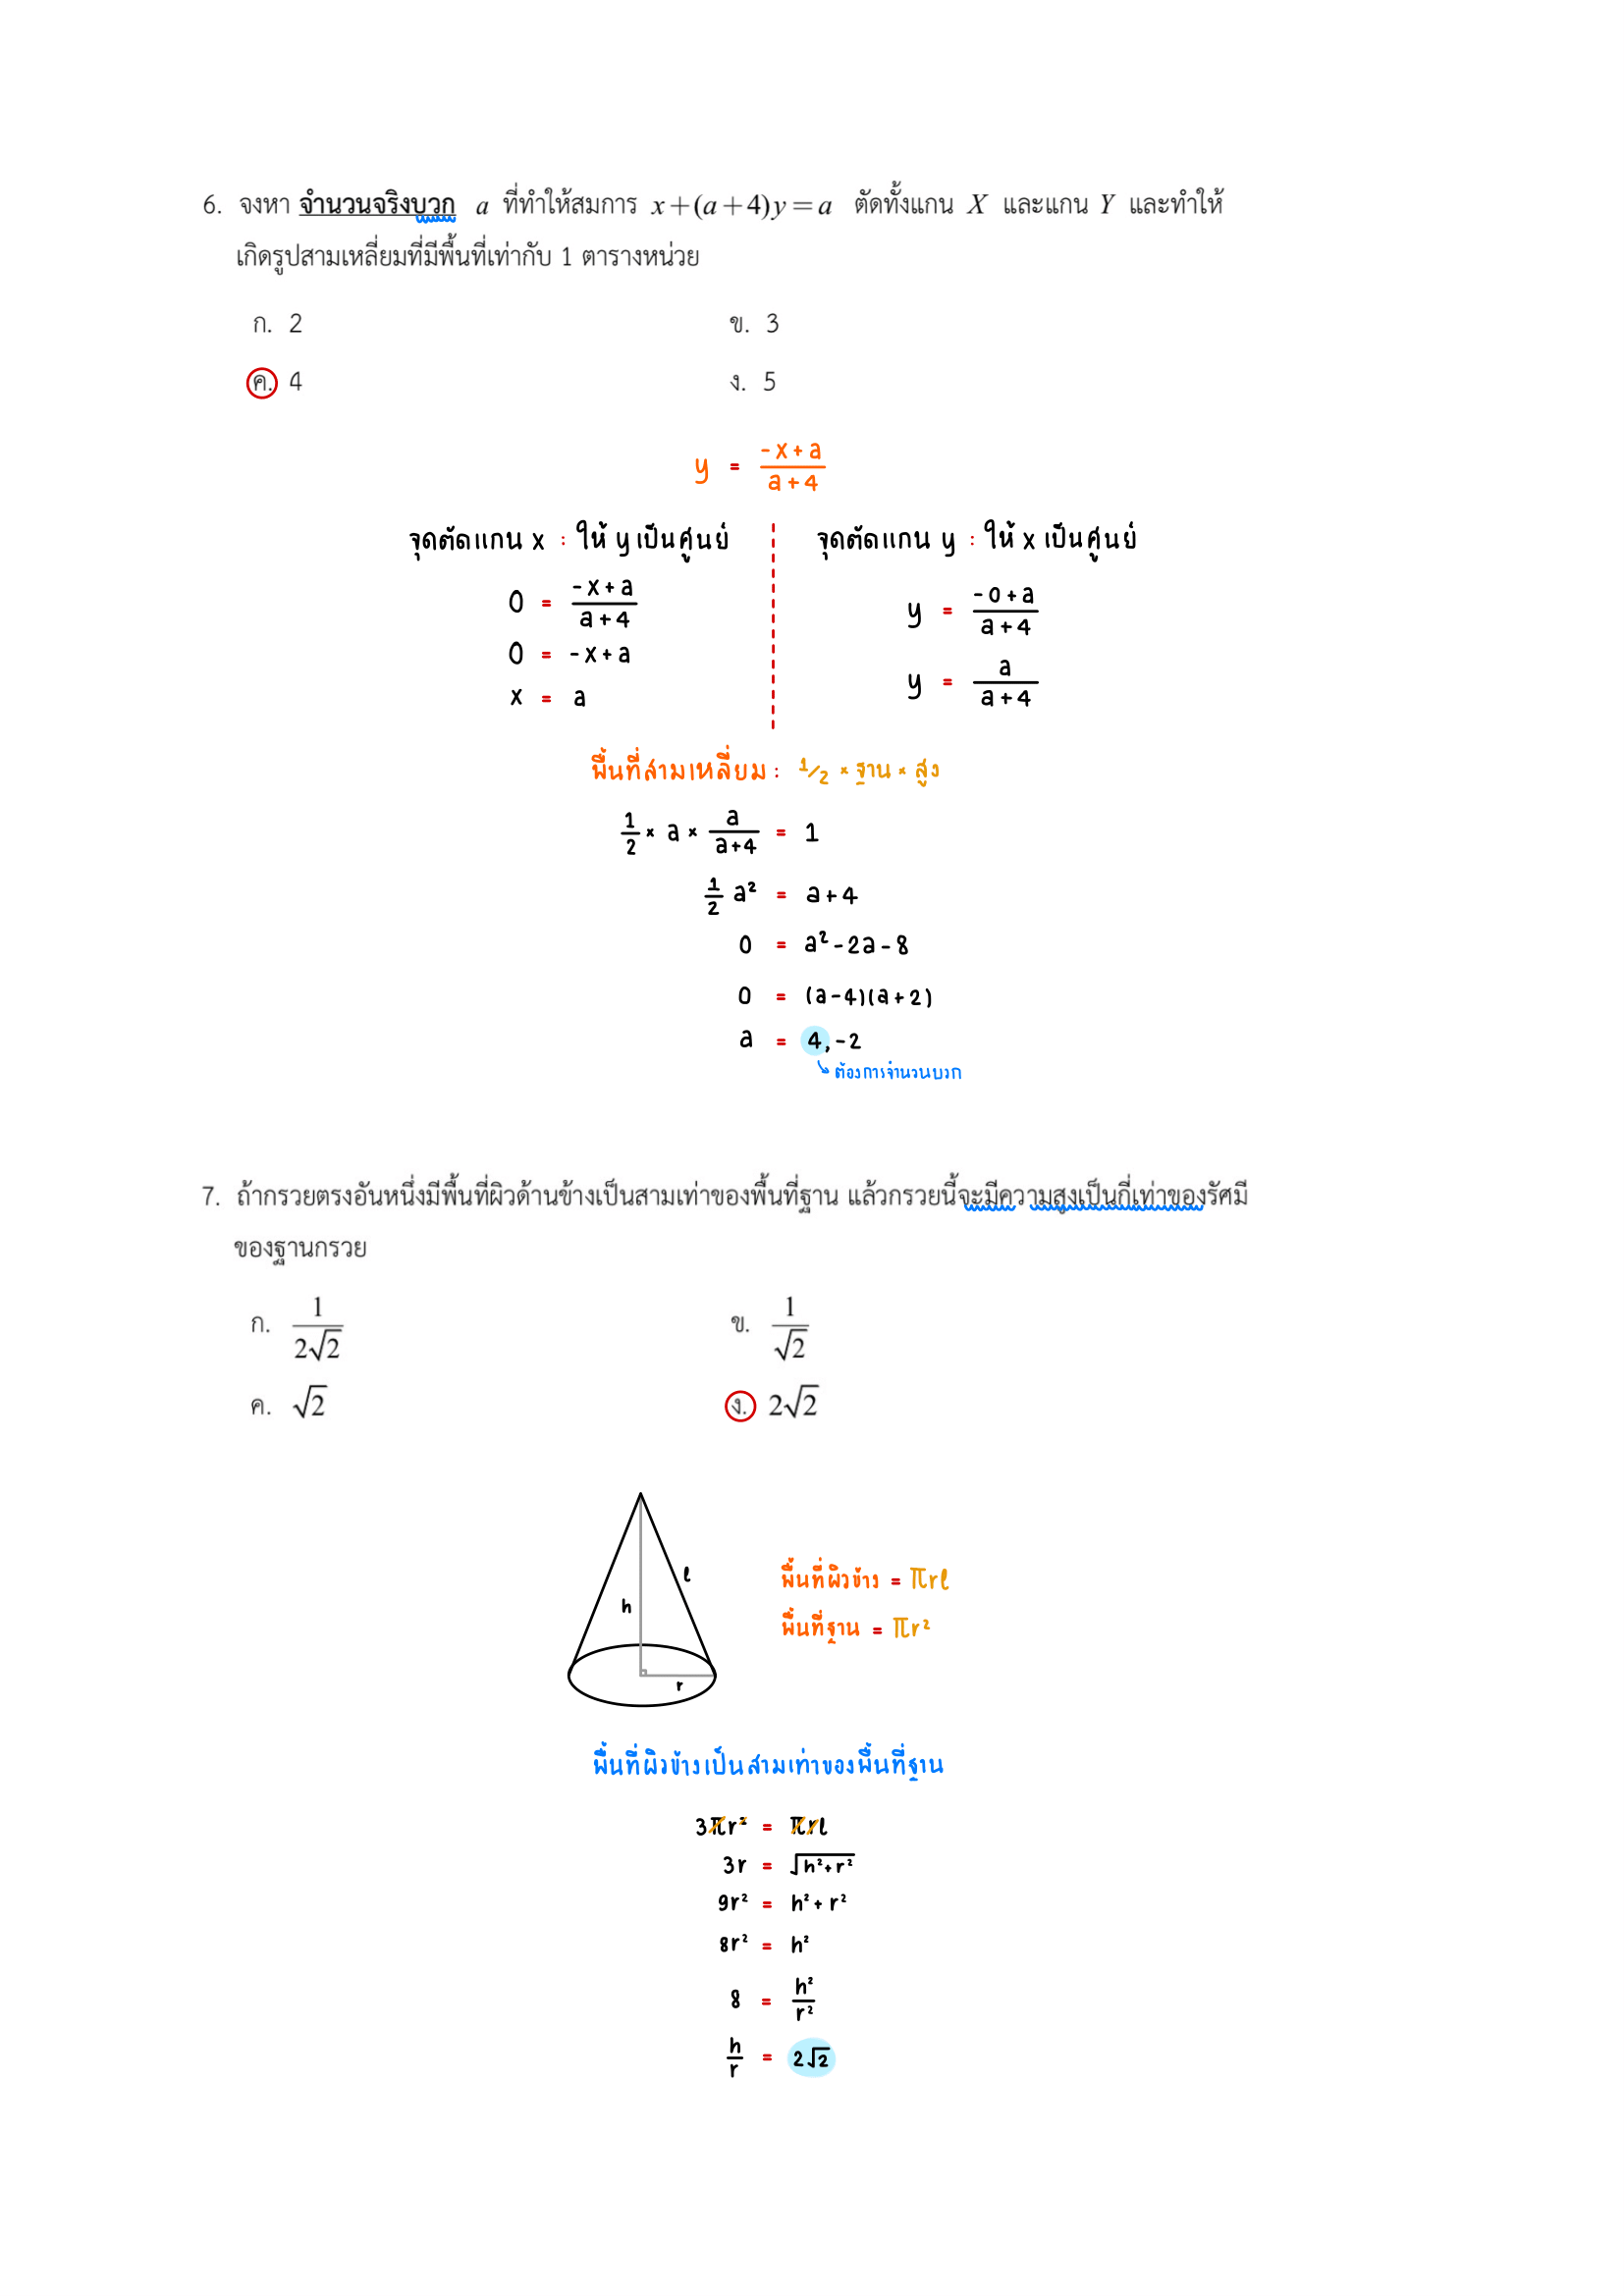 6. จงหา จำนวนจริงบวก a ที่ทำให้สมการ x+(a+4)y=a ตัดทั้งแกน X และแกน Y และทำให้
เกิดรูปสามเหลี่ยมที่มีพื้นที่เท่ากับ 1 ตารางหน่วย
ก. 2 ข. 3
ค. 4 ง. 5
y = (-x+a)/(a+4)
จุดตัดแกน x : ให้ y เป็นศูนย์
0 = (-x+a)/(a+4)
0 = -x+a
x = a
จุดตัดแกน y : ให้ x เป็นศูนย์
y = (-0+a)/(a+4)
y = a/(a+4)
พื้นที่สามเหลี่ยม : 1/2 × ฐาน × สูง
1/2 × a × a/(a+4) = 1
1/2 a² = a+4
0 = a²-2a-8
0 = (a-4)(a+2)
a = 4,-2
ต้องการจำนวนบวก
7. ถ้ากรวยตรงอันหนึ่งมีพื้นที่ผิวด้านข้างเป็นสามเท่าของพื้นที่ฐาน แล้วกรวยนี้จะมีความสูงเป็นกี่เท่าของรัศมี
ของฐานกรวย
ก. 1/(2√2) ข. 1/√2
ค. √2 ง. 2√2
l
h
r
พื้นที่ผิวข้าง = πrl
พื้นที่ฐาน = πr²
พื้นที่ผิวข้างเป็นสามเท่าของพื้นที่ฐาน
3πr² = πrl
3r = √(h²+r²)
9r² = h²+r²
8r² = h²
8 = h²/r²
h/r = 2√2